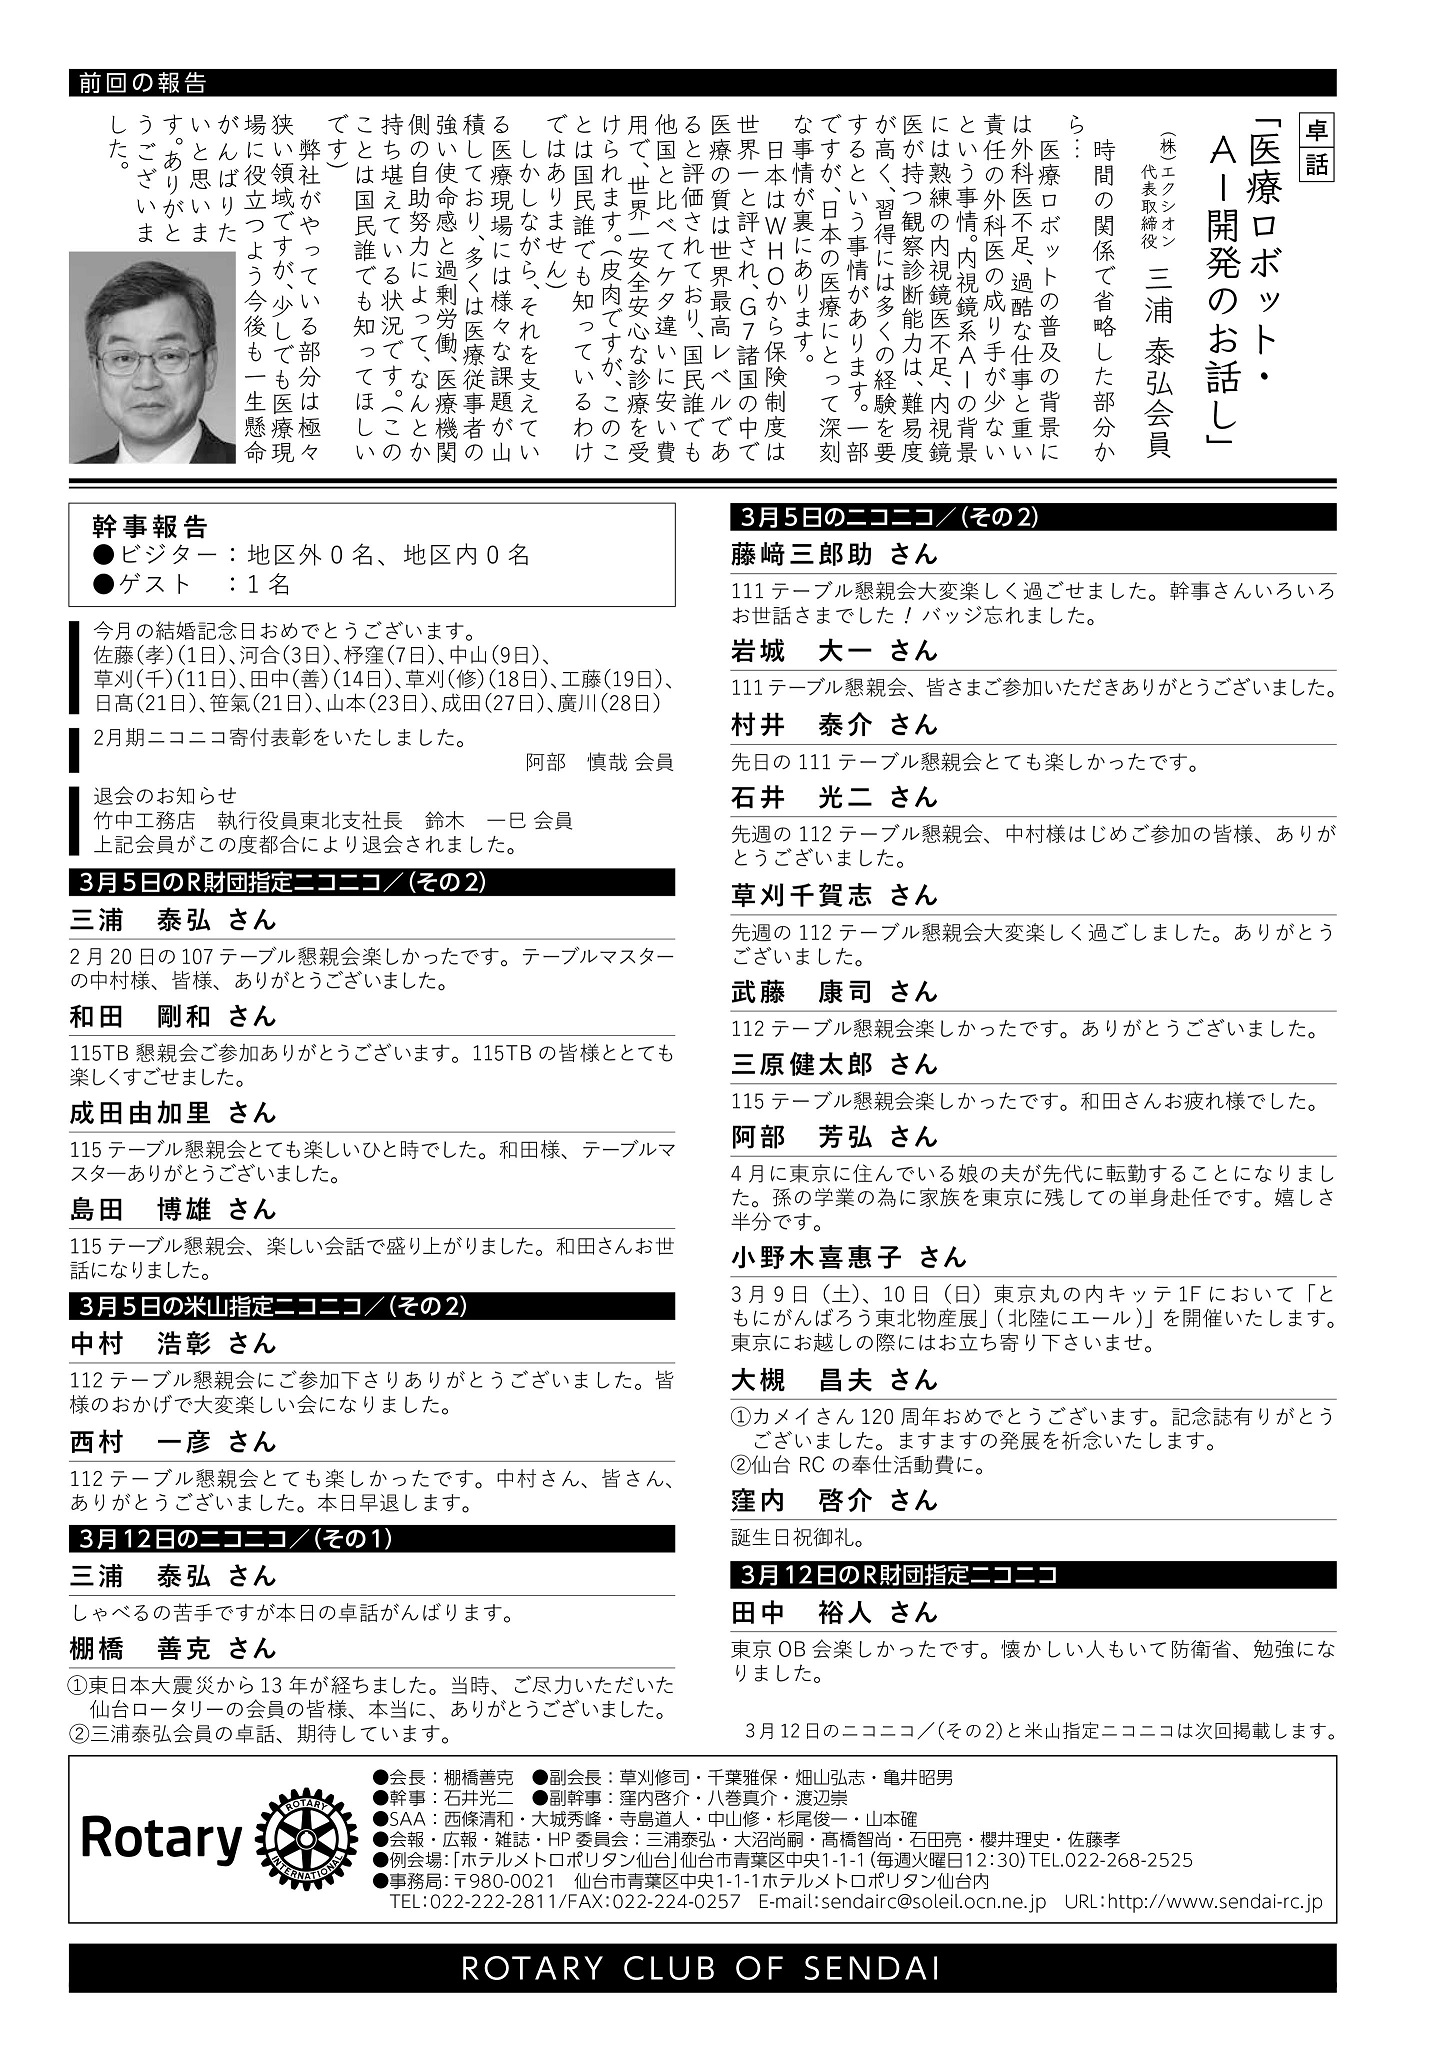 前回の報告
卓話
「医療ロボット・
ＡＩ開発のお話し」
（株）エクシオン
代表取締役 三浦 泰弘会員
時間の関係で省略した部分か
ら…
医療ロボットの普及の背景に
は外科医不足、過酷な仕事と重い
責任の外科医の成り手が少ない
という事情。内視鏡系ＡＩの背景
には熟練の内視鏡医不足、内視鏡
医が持つ観察診断能力は、難易度
が高く、習得には多くの経験を要
するという事情があります。一部
ですが、日本の医療にとって深刻
な事情が裏にあります。
日本はＷＨＯから保険制度は
世界一と評され、Ｇ７諸国の中で
医療の質は世界最高レベルであ
ると評価されており、国民誰でも
他国と比べてケタ違いに安い費
用で、世界一安全安心な診療を受
けられます。（皮肉ですが、このこ
とは国民誰でも知っているわけ
ではありません）
しかしながら、それを支えてい
る医療現場には様々な課題が山
積しており、多くは医療従事者の
強い使命感と過剰労働、医療機関
側の自助努力によって、なんとか
持ち堪えている状況です。（この
ことは国民誰でも知ってほしい
です）
弊社がやっている部分は極々
狭い領域ですが、少しでも医療現
場に役立つよう今後も一生懸命
がんばりた
いと思いま
す。ありがと
うございま
した。
幹事報告
●ビジター：地区外０名、地区内０名
●ゲスト　：１名
今月の結婚記念日おめでとうございます。
佐藤（孝）（1日）、河合（3日）、杼窪（7日）、中山（9日）、
草刈（千）（11日）、田中（善）（14日）、草刈（修）（18日）、工藤（19日）、
日髙（21日）、笹氣（21日）、山本（23日）、成田（27日）、廣川（28日）
2月期ニコニコ寄付表彰をいたしました。
阿部　慎哉 会員
退会のお知らせ
竹中工務店　執行役員東北支社長　鈴木　一巳 会員
上記会員がこの度都合により退会されました。
３月５日のＲ財団指定ニコニコ／（その２）
三浦　泰弘 さん
2 月 20 日の 107 テーブル懇親会楽しかったです。テーブルマスター
の中村様、皆様、ありがとうございました。
和田　剛和 さん
115TB 懇親会ご参加ありがとうございます。115TB の皆様ととても
楽しくすごせました。
成田由加里 さん
115 テーブル懇親会とても楽しいひと時でした。和田様、テーブルマ
スターありがとうございました。
島田　博雄 さん
115 テーブル懇親会、楽しい会話で盛り上がりました。和田さんお世
話になりました。
３月５日の米山指定ニコニコ／（その２）
中村　浩彰 さん
112 テーブル懇親会にご参加下さりありがとうございました。皆
様のおかげで大変楽しい会になりました。
西村　一彦 さん
112 テーブル懇親会とても楽しかったです。中村さん、皆さん、
ありがとうございました。本日早退します。
３月１２日のニコニコ／（その１）
三浦　泰弘 さん
しゃべるの苦手ですが本日の卓話がんばります。
棚橋　善克 さん
①東日本大震災から 13 年が経ちました。当時、ご尽力いただいた
仙台ロータリーの会員の皆様、本当に、ありがとうございました。
②三浦泰弘会員の卓話、期待しています。
３月５日のニコニコ／（その２）
藤﨑三郎助 さん
111 テーブル懇親会大変楽しく過ごせました。幹事さんいろいろ
お世話さまでした！バッジ忘れました。
岩城　大一 さん
111 テーブル懇親会、皆さまご参加いただきありがとうございました。
村井　泰介 さん
先日の 111 テーブル懇親会とても楽しかったです。
石井　光二 さん
先週の 112 テーブル懇親会、中村様はじめご参加の皆様、ありが
とうございました。
草刈千賀志 さん
先週の 112 テーブル懇親会大変楽しく過ごしました。ありがとう
ございました。
武藤　康司 さん
112 テーブル懇親会楽しかったです。ありがとうございました。
三原健太郎 さん
115 テーブル懇親会楽しかったです。和田さんお疲れ様でした。
阿部　芳弘 さん
4 月に東京に住んでいる娘の夫が先代に転勤することになりまし
た。孫の学業の為に家族を東京に残しての単身赴任です。嬉しさ
半分です。
小野木喜惠子 さん
3 月 9 日（土）、10 日（日）東京丸の内キッテ 1F において「と
もにがんばろう東北物産展」（北陸にエール）」を開催いたします。
東京にお越しの際にはお立ち寄り下さいませ。
大槻　昌夫 さん
①カメイさん 120 周年おめでとうございます。記念誌有りがとう
ございました。ますますの発展を祈念いたします。
②仙台 RC の奉仕活動費に。
窪内　啓介 さん
誕生日祝御礼。
３月１２日のＲ財団指定ニコニコ
田中　裕人 さん
東京 OB 会楽しかったです。懐かしい人もいて防衛省、勉強にな
りました。
３月12日のニコニコ／（その２）と米山指定ニコニコは次回掲載します。
Rotary
ROTARY
INTERNATIONAL
●会長：棚橋善克　●副会長：草刈修司・千葉雅保・畑山弘志・亀井昭男
●幹事：石井光二　●副幹事：窪内啓介・八巻真介・渡辺崇
●SAA：西條清和・大城秀峰・寺島道人・中山修・杉尾俊一・山本確
●会報・広報・雑誌・HP 委員会：三浦泰弘・大沼尚嗣・髙橋智尚・石田亮・櫻井理史・佐藤孝
●例会場：「ホテルメトロポリタン仙台」仙台市青葉区中央1-1-1（毎週火曜日12：30）TEL.022-268-2525
●事務局：〒980-0021　仙台市青葉区中央1-1-1ホテルメトロポリタン仙台内
TEL：022-222-2811/FAX：022-224-0257　E-mail：sendairc@soleil.ocn.ne.jp　URL：http://www.sendai-rc.jp
ROTARY CLUB OF SENDAI